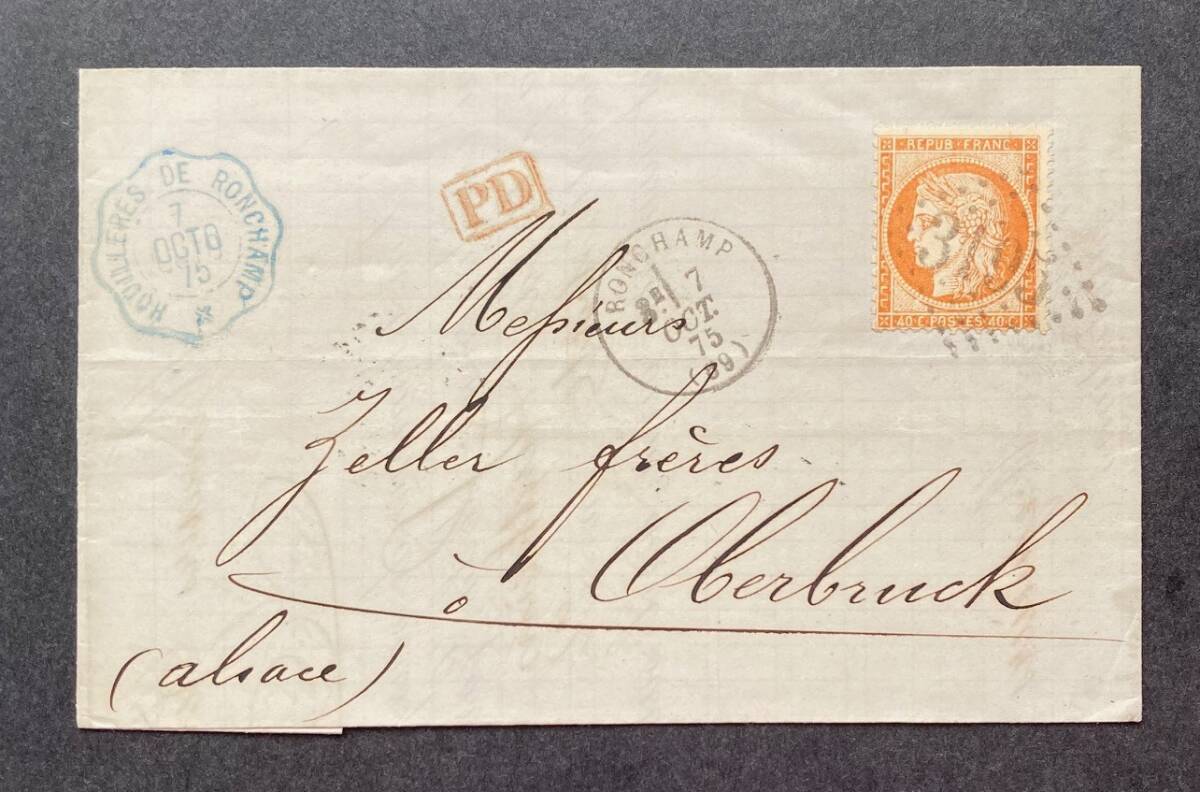 HOUILLERES DE RONCHAMP
7
OCTO
75
PD
RONCHAMP
7
OCT.
75
REPUB·FRANC·
40·C·POSTES·40·C
Messieurs
Zeller frères
à Oberbruck
(alsace)